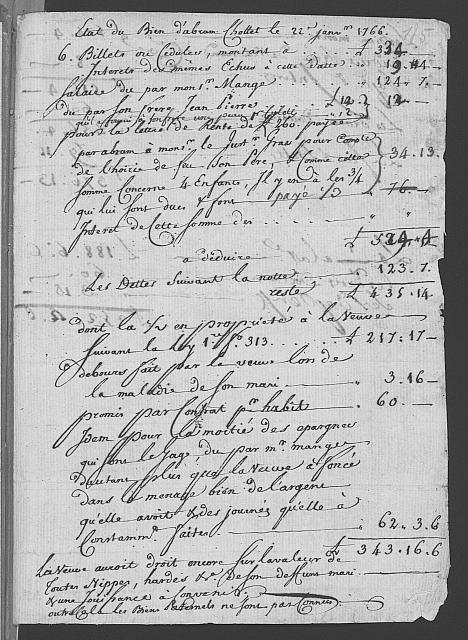 Etat du Bien d'abram Chollet le 22e. janvr. 1766.
6. Billets ou Cedules, montant à . . . £ 334
Interets des mêmes Echus à cette datte 19 ״ 4
Salaire du par monsr. Mange 124 ״ 7.
du par son frere Jean Pierre £ 12 12
pour la lettre de Rente de £ 360. payée
par abram à monsr. le Just. fras pour Compte
de l'hoirie de feu Son Pere, & Comme cette 34 . 13.
Somme Concerne 4 Enfants, Il y en à les 3/4
qui lui sont dues & font payé 76
Interet de Cette somme dès . . . .
£
a déduire
Les Dettes Suivant la notte 123 . 7.
reste £ 435 . 14.
dont la 1/2 en propriété à la Veuve
Suivant la loy 1re fo. 313 . . . £ 217 : 17
debours fait par la veuve lors de
la maladie de son mari 3 . 16
promis par Contrat pr. habit 60
Idem pour la moitié des epargnes
qui font le Gage du par mr. mange
d'autant plus que la Veuve à foncé
dans le menage bien de l'argent
qu'elle avoit & des journeés qu'elle à
Constamt. faites 62 . 3 . 6
£ 343 . 16 . 6
La Veuve auroit droit encore sur la valeur de
Toutes Nippes, hardes &c de son deffunt mari
& une jouissance à Convenir
outre cela les Biens Paternels ne sont pas Connus.